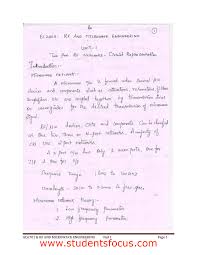 EC2403: RF AND MICROWAVE ENGINEERING
UNIT-1
Two Port RF Networks - Circuit Representation
Introduction:-
Microwave network:-
A microwave n/w is formed when several
devices and components such as attenuators, resonators, filters
amplifiers etc are coupled together by transmission lines
or waveguides for the desired transmission of microwave
signal.
devices, ckts and components can be
as one, two, three or N-port networks. A majority of
are 2-port networks.
2 - port n/w has only 2 ports, one for
i/p & one for o/p
range :
in free space.
Microwave network theory:-
1. Low frequency parameters
2. High frequency parameters
RF AND MICROWAVE ENGINEERING Unit 1 Page 1
www.studentsfocus.com